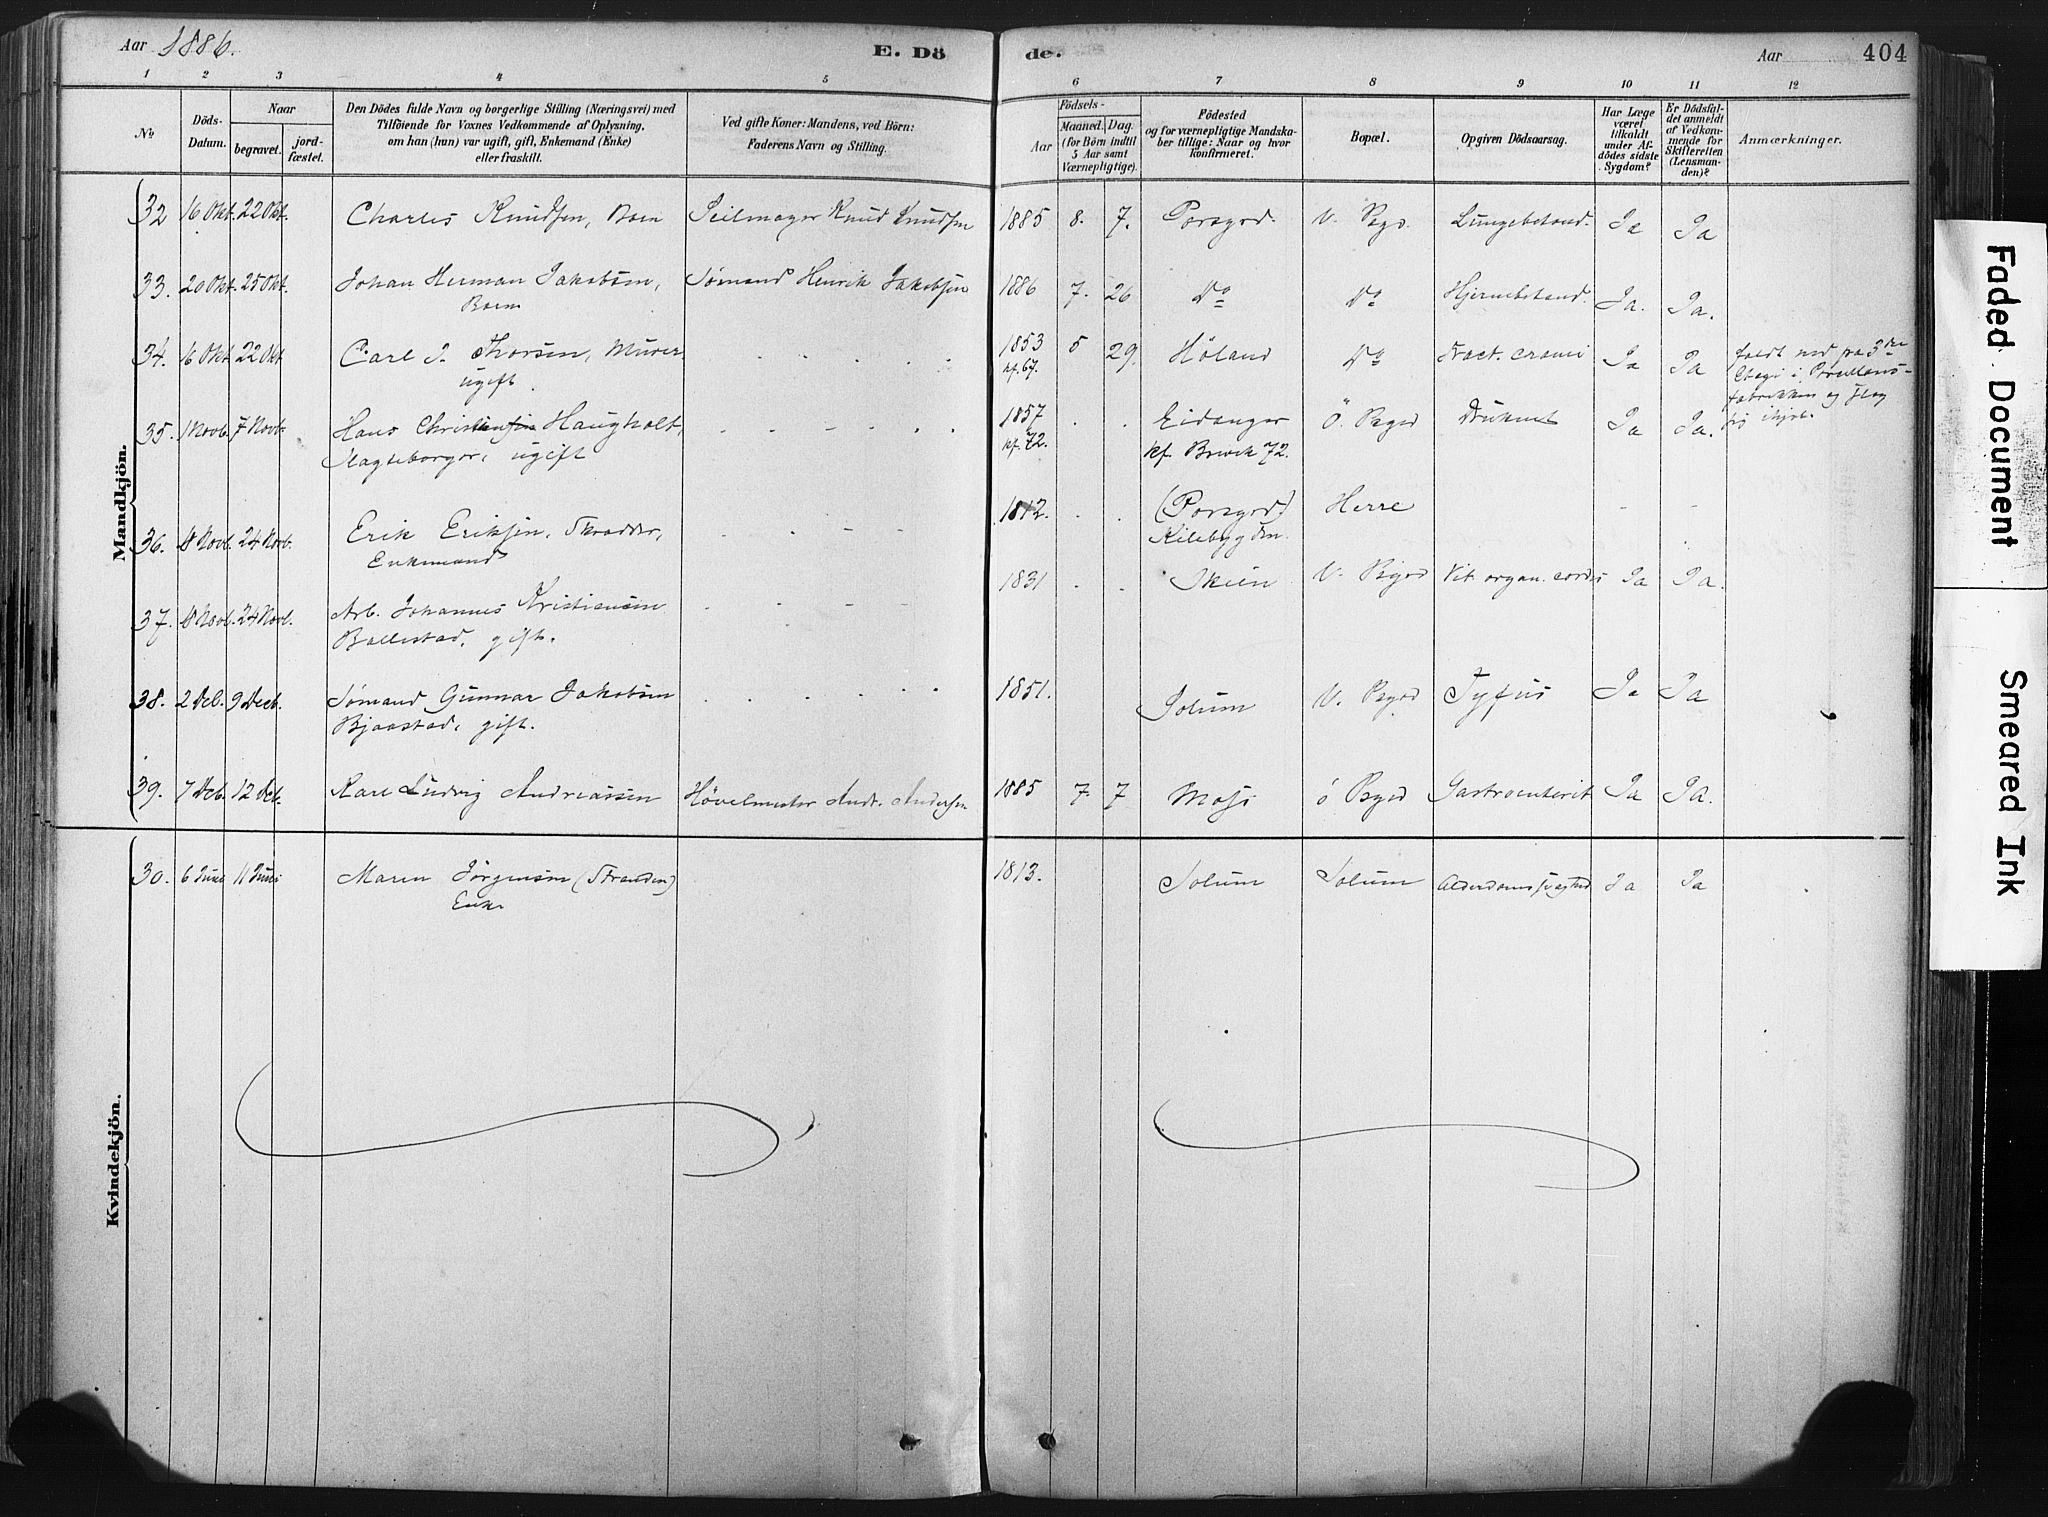 Aar 1886.
E. Dö
de.
Aar
404
1 2 3 4 5 6 7 8 9 10 11 12
No
Döds-
Datum.
Naar
begravet.
jord-
fæstet.
Den Dödes fulde Navn og borgerlige Stilling (Næringsvei) med
Tilföiende for Voxnes Vedkommende af Oplysning,
om han (hun) var ugift, gift, Enkemand (Enke)
eller fraskilt.
Ved gifte Koner: Mandens, ved Börn:
Faderens Navn og Stilling.
Födsels-
Aar
Maaned.
Dag.
(for Börn indtil
5 Aar samt
Værnepligtige).
Födested
og for værnepligtige Mandska-
ber tillige: Naar og hvor
konfirmeret.
Bopæl.
Opgiven Dödsaarsag.
Har Læge
været
tilkaldt
under Af-
dödes sidste
Sygdom?
Er Dödsfal-
det anmeldt
af Vedkom-
mende for
Skifteretten
(Lensman-
den)?
Anmærkninger.
Mandkjön.
32 16 Okt. 22 Okt. Charles Knudsen, Barn Seilmager Knud Knudsen 1885 8. 7. Porsgrd. V. Psgr. Lungebetænd. Ja Ja
33. 20 Okt. 25 Okt. Johan Herman Jakobsen, Sømand Henrik Jakobsen 1886 7. 26 Do Do Hjernebetænd. Ja. Ja.
Barn
34. 16 Okt 22 Okt Carl J. Thorsen, Murer 1853 5 29. Høland Do Fract. cranii Ja Ja faldt ned fra 3die
ugift. kf. 67. Etage i Porcellæns-
fabrikken og slog
sig ihjel.
35. 1 Novb. 7 Novb. Hans Christensen Haugholt, 1857 . . Eidanger Ö. Psgrd Druknet Ja Ja.
ugift kf. 72. kf. Brevik 72.
36. 18 Novb. 24 Novb. Erik Eriksen, Skrædder, 1812. . . (Porsgrd) Herre - -
Enkemand Kilebygden.
37. 18 Novb. 24 Novb. Arb. Johannes Kristiansen 1831 . . Skien V. Psgrd Vit. organ. cordis Ja Ja.
Ballestad, gift.
38. 2 Dcb. 9 Decb. Sømand Gunnar Jakobsen 1851. Solum V. Psgrd Tyfus Ja Ja
Bjaastad, gift.
39. 7 Dcb. 12 Dcb. Karl Ludvig Andreassen Høvelmester Andr. Andersen 1885 7. 7 Moss ö Psgrd Gastroenterit Ja Ja.
Kvindekjön.
30. 6 Juni 11 Juni Maren Jørgensen (Stranden) 1813. Solum Solum Alderdomssvaghed Ja Ja
Enke
Faded Document
Smeared Ink